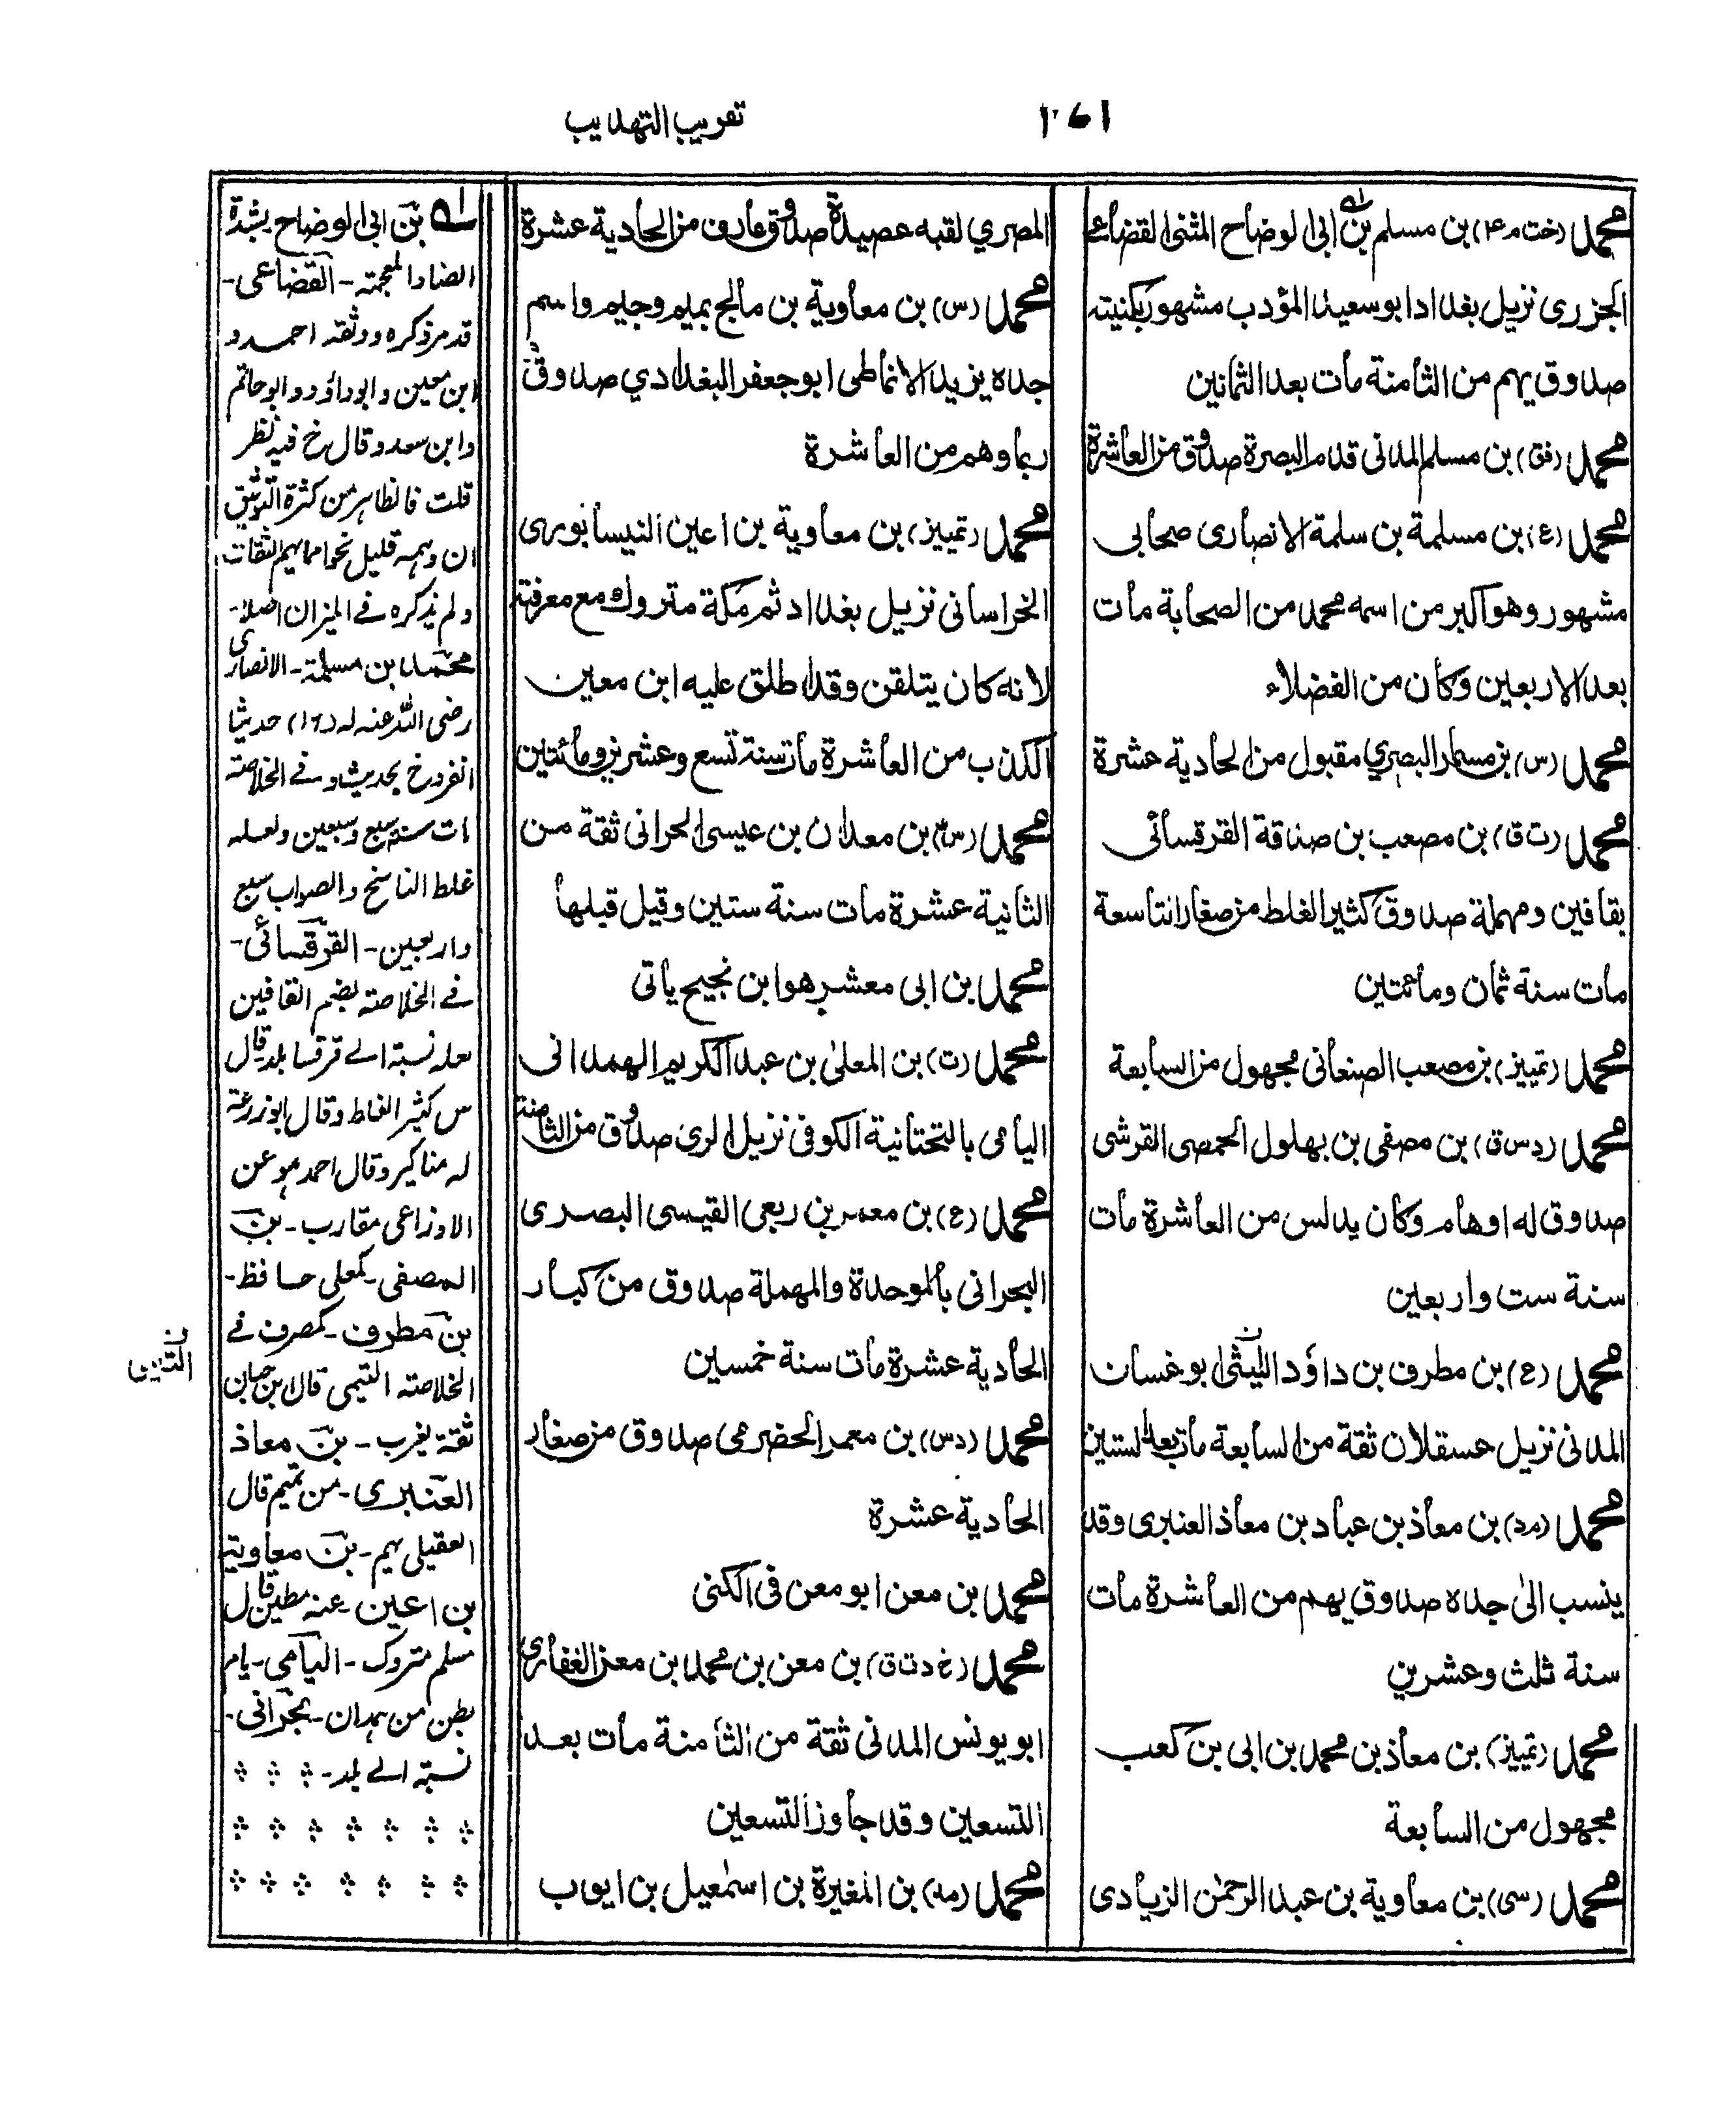 تقريب التهذيب
محمد (خت م ۴) بن مسلم بن ابى الوضاح المثنى القضاعى
الجزرى نزيل بغداد ابو سعيد المؤدب مشهور بكنيته
صدوق يهم من الثامنة مات بعد الثمانين
محمد (فق) بن مسلم المدنى قدم البصرة صدوق من العاشرة
محمد (ع) بن مسلمة بن سلمة الانصارى صحابى
مشهور وهو اكبر من اسمه محمد من الصحابة مات
بعد الاربعين وكان من الفضلاء
محمد (س) بن مسمار البصري مقبول من الحادية عشرة
محمد (ت ق) بن مصعب بن صدقة القرقسائى
بقافين ومهملة صدوق كثير الغلط من صغار التاسعة
مات سنة ثمان ومائتين
محمد (تمييز) بن مصعب الصنعانى مجهول من السابعة
محمد (د س ق) بن مصفى بن بهلول الحمصى القرشى
صدوق له اوهام وكان يدلس من العاشرة مات
سنة ست واربعين
محمد (ع) بن مطرف بن داؤد الليثى ابو غسان
المدنى نزيل عسقلان ثقة من السابعة مات بعد الستين
محمد (مد) بن معاذ بن عباد بن معاذ العنبرى وقد
ينسب الى جده صدوق يهم من العاشرة مات
سنة ثلث وعشرين
محمد (تمييز) بن معاذ بن محمد بن ابى بن كعب
مجهول من السابعة
محمد (سى) بن معاوية بن عبد الرحمٰن الزيادى
المصري لقبه عصيدة صدوق عارف من الحادية عشرة
محمد (س) بن معاوية بن مالج بميم وجيم واسم
جده يزيد الانماطى ابو جعفر البغدادي صدوق
ربما وهم من العاشرة
محمد (تمييز) بن معاوية بن اعين النيسابورى
الخراسانى نزيل بغداد ثم مكة متروك مع معرفته
لانه كان يتلقن وقد اطلق عليه ابن معين
الكذب من العاشرة مات سنة تسع وعشرين ومائتين
محمد (س) بن معدان بن عيسى الحرانى ثقة من
الثانية عشرة مات سنة ستين وقيل قبلها
محمد بن ابى معشر هو ابن نجيح ياتى
محمد (ت) بن المعلىٰ بن عبد الكريم الهمدانى
اليامى بالتحتانية الكوفى نزيل الرى صدوق من الثامنة
محمد (ع) بن معمر بن ربعى القيسى البصرى
البحرانى بالموحدة والمهملة صدوق من كبار
الحادية عشرة مات سنة خمسين
محمد (د س) بن معمر الحضرمى صدوق من صغار
الحادية عشرة
محمد بن معن ابو معن فى الكنى
محمد (خ د ت ق) بن معن بن محمد بن معن الغفارى
ابو يونس المدنى ثقة من الثامنة مات بعد
التسعين وقد جاوز التسعين
محمد (مد) بن المغيرة بن اسمٰعيل بن ايوب
له بن ابى الوضاح بشدة
الضاد المعجمة - القضاعى -
قد مر ذكره ووثقه احمد و
ابن معين وابو داؤد وابو حاتم
وابن سعد وقال خ فيه نظر
قلت فالظاهر من كثرة التوثيق
ان وهمه قليل نحو امما يهم الثقات
ولم يذكره فى الميزان اصلا -
محمد بن مسلمة - الانصارى
رضى الله عنه له (١٦) حديثا
انفرد خ بحديث وفى الخلاصة
مات سنة سبع وسبعين ولعله
غلط الناسخ والصواب سبع
واربعين - القرقسائى -
فى الخلاصة بضم القافين
لعله نسبة الى قرقسا بلد قال
س كثير الغلط وقال ابو زرعة
له مناكير وقال احمد هو عن
الاوزاعى مقارب - بن
المصفى - كمعلى حافظ -
بن مطرف - كمصرف فى
الخلاصة التيمى قال ابن حبان
ثقة يغرب - بن معاذ
العنبرى - من تميم قال
العقيلى يهم - بن معاوية
بن اعين - عنه مطين قال
مسلم متروك - اليامى - يام
بطن من همدان - بحرانى -
نسبة الى بلد -